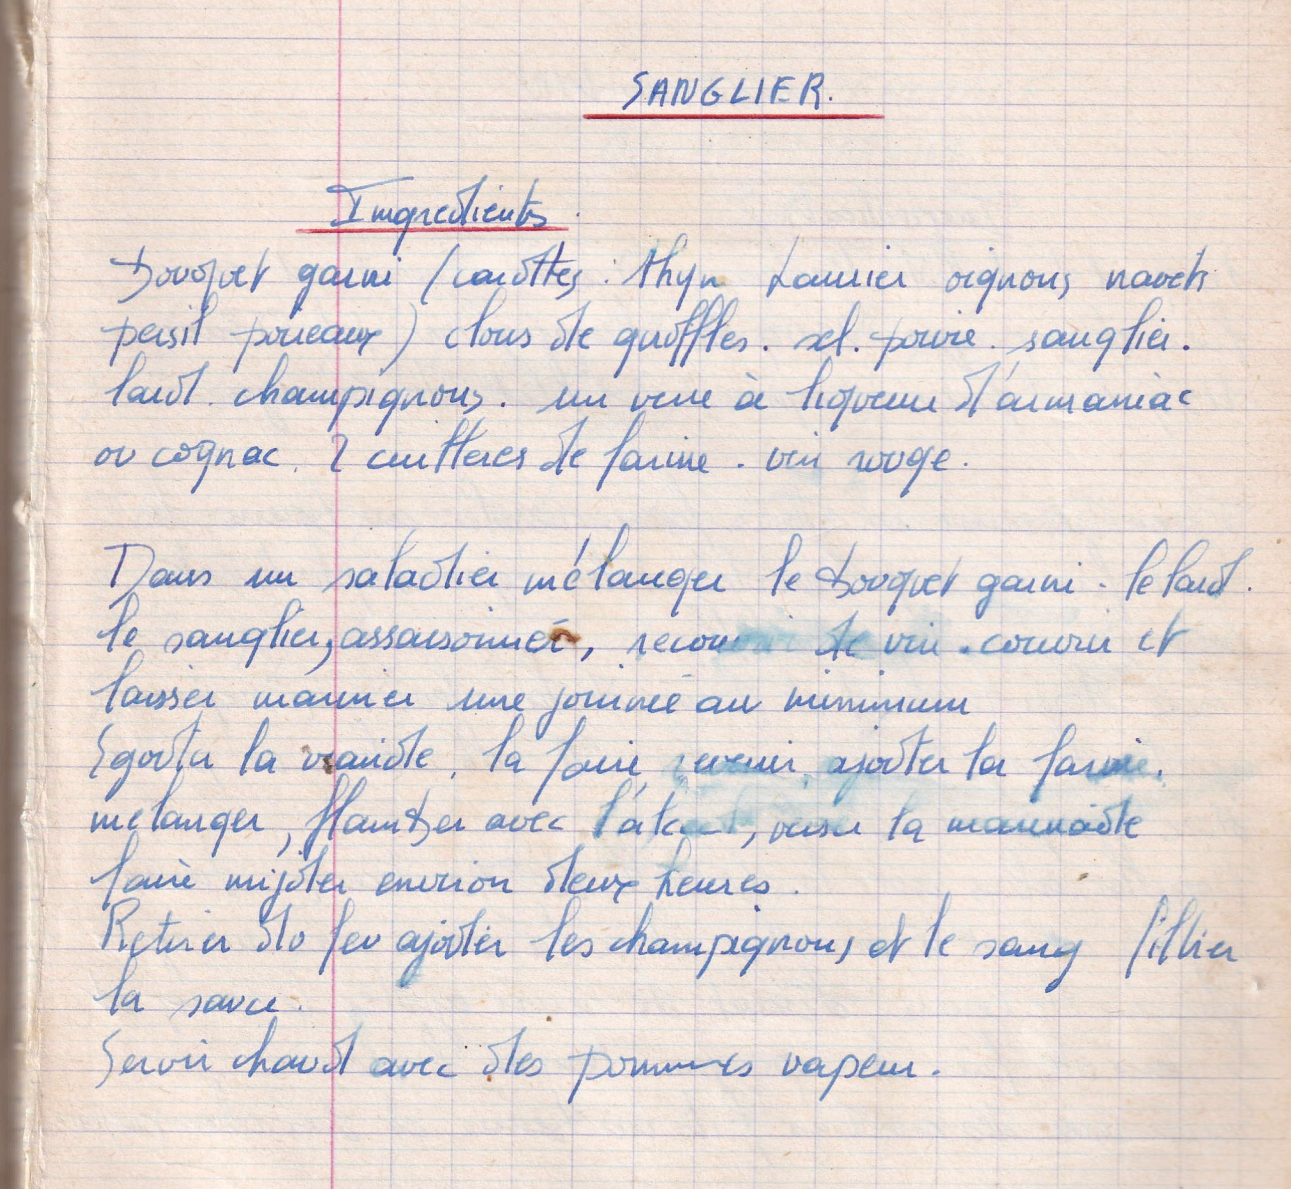 SANGLIER.
Ingredients.
Bouquet garni (carottes : thyn Laurier oignons navets
persil poireaux) clous de guoffles. sel. poivre. sanglier.
lard. champignons. un verre à liqueur d'armaniac
ou cognac. 2 cuilleres de farine. vin rouge.
Dans un saladier mélanger le bouquet garni. le lard.
le sanglier, assaisonner, recouvrir de vin. couvrir et
laisser mariner une journée au minimum
Egouter la viande, la faire revenir, ajouter la farine.
melanger, flamber avec l'alcool, verser la marinade
faire mijoter environ deux heures.
Retirer du feu ajouter les champignons et le sang filtrer
la sauce.
Servir chaud avec des pommes vapeur.